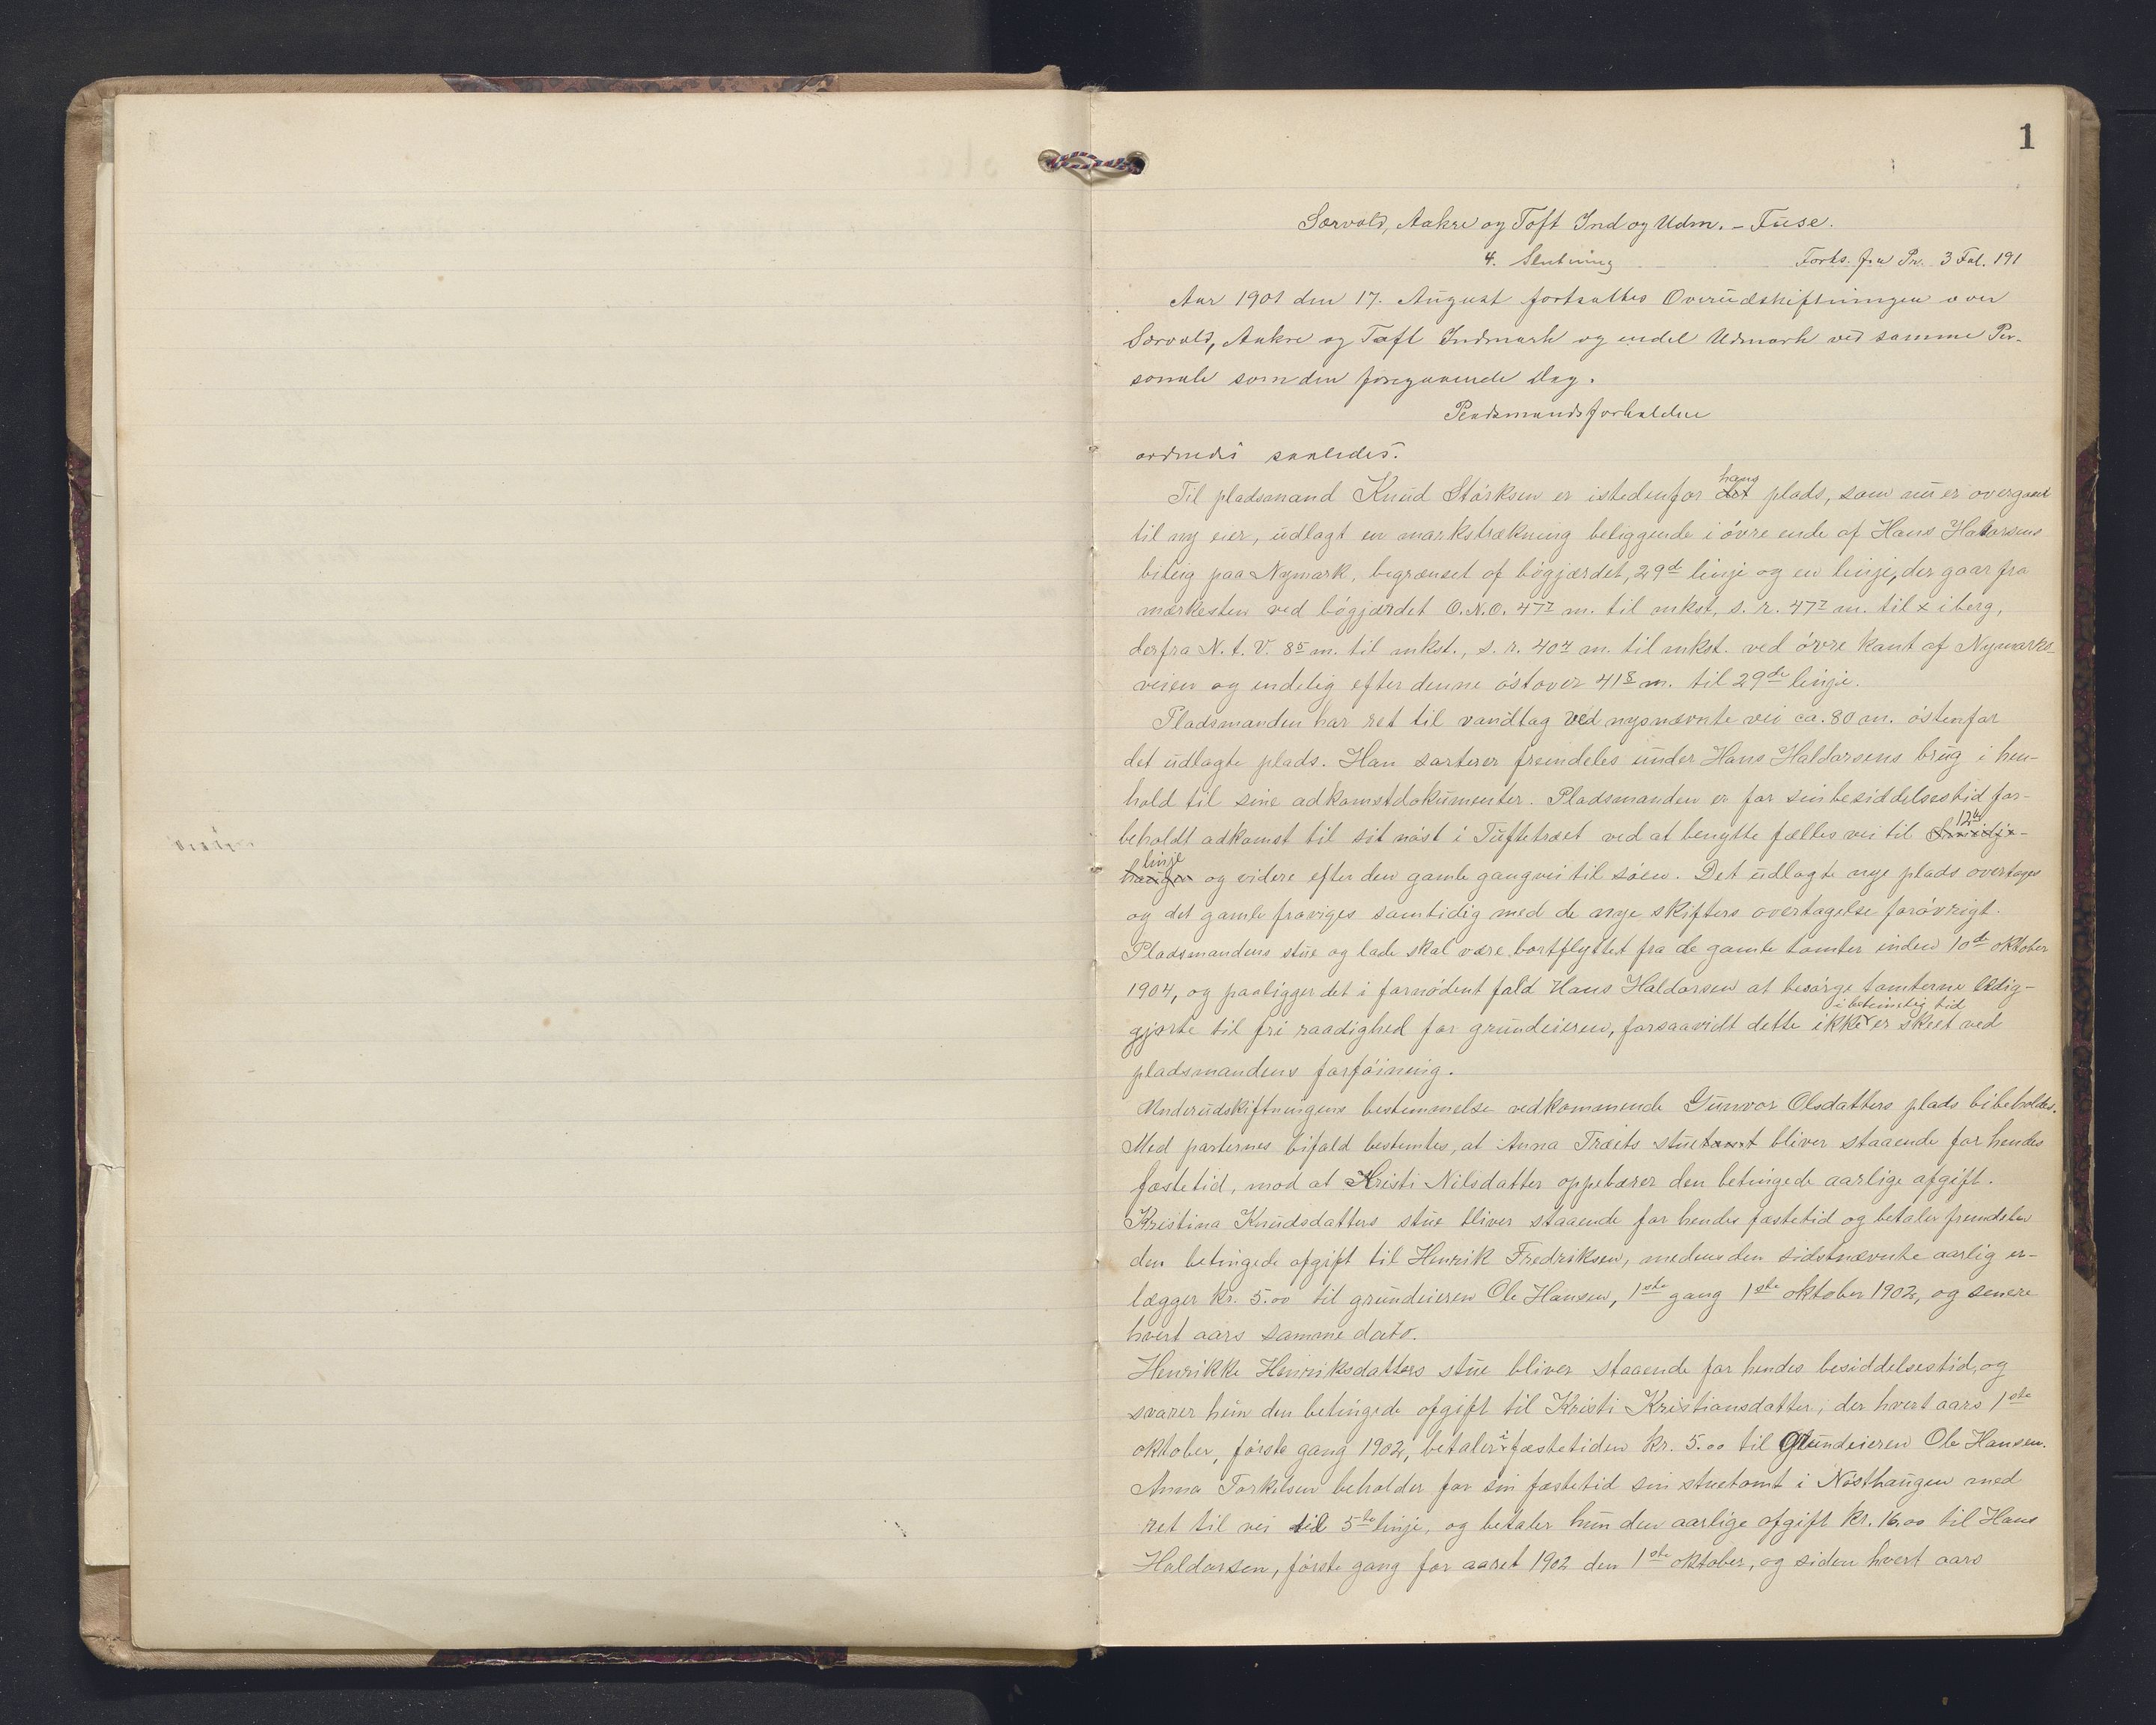 1
Sørvold, Aakre og Toft Ind og Udm. – Fuse.
4. Slutning Forts. fra Pr. 3 Fol. 191
Aar 1901 den 17. August fortsattes Overudskiftningen over
Sørvold, Aakre og Toft Indmark og endel Udmark ved samme Per-
sonale som den foregaaende Dag.
Pladsmandsforholdene
ordnedes saaledes:
Til pladsmand Knud Størksen er istedenfor hans plads, som nu er overgaaet
til ny eier, udlagt en markstrækning beliggende i øvre ende af Hans Haldorsens
biteig paa Nymark, begrænset af bøgjærdet, 29de linje og en linje, der gaar fra
mærkesten ved bøgjærdet O.N.O. 47⁷ m. til mkst., s. r. 47⁷ m. til x i berg,
derfra N. t. V. 8⁵ m. til mkst., s. r. 40⁴ m. til mkst. ved øvre kant af Nymarks-
veien og endelig efter denne østover 41⁸ m. til 29de linje.
Pladsmanden har ret til vandtag ved nysnævnte vei ca. 80 m. østenfor
det udlagte plads. Han sorterer fremdeles under Hans Haldorsens brug i hen-
hold til sine adkomstdokumenter. Pladsmanden er for sin besiddelsestid for-
beholdt adkomst til sit nøst i Tuftetræet ved at benytte fælles vei til 12te
linje og videre efter den gamle gangvei til søen. Det udlagte nye plads overtages
og det gamle fraviges samtidig med de nye skifters overtagelse forøvrigt.
Pladsmandens stue og lade skal være bortflyttet fra de gamle tomter inden 10de oktober
1904, og paaligger det i fornødent fald Hans Haldorsen at besørge tomterne ledig-
gjorte til fri raadighed for grundeieren, forsaavidt dette ikke i betimelig tid er skeet ved
pladsmandens forføining.
Underudskiftningens bestemmelse vedkommende Gunvor Olsdatters plads bibeholdes.
Med parternes bifald bestemtes, at Anna Træets stuetomt bliver staaende for hendes
fæstetid, mod at Kristi Nilsdatter oppebærer den betingede aarlige afgift.
Kristina Knudsdatters stue bliver staaende for hendes fæstetid og betaler fremdeles
den betingede afgift til Henrik Fredriksen, medens den sidstnævnte aarlig er-
lægger kr. 5.00 til grundeieren Ole Hansen, 1ste gang 1ste oktober 1902, og senere
hvert aars samme dato.
Henrikke Henriksdatters stue bliver staaende for hendes besiddelsestid, og
svarer hun den betingede afgift til Kristi Kristiansdatter, der hvert aars 1ste
oktober, første gang 1902, betaler i fæstetiden kr. 5.00 til grundeieren Ole Hansen.
Anna Torkelsen beholder for sin fæstetid sin stuetomt i Nøsthaugen med
ret til vei til 5te linje, og betaler hun den aarlige afgift kr. 16.00 til Hans
Haldorsen, første gang for aaret 1902 den 1ste oktober, og siden hvert aars